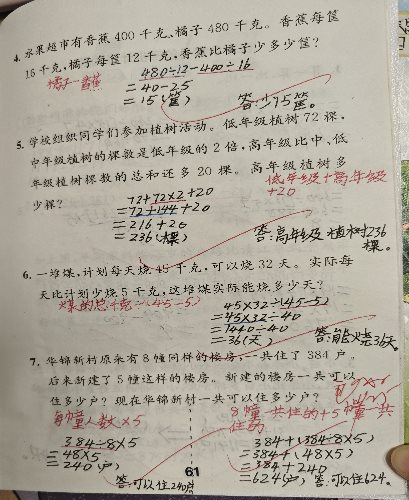 4. 水果超市有香蕉400千克、橘子480千克。香蕉每筐
16千克,橘子每筐12千克,香蕉比橘子少多少筐?
橘子-香蕉
480÷12-400÷16
=40-25
=15(筐)
答:少15筐。
5. 学校组织同学们参加植树活动。低年级植树72棵,
中年级植树的棵数是低年级的2倍,高年级比中、低
年级植树棵数的总和还多20棵。高年级植树多
少棵?
低年级+高年级
+20
72+72×2+20
=72+144+20
=216+20
=236(棵)
答:高年级植树236
棵。
6. 一堆煤,计划每天烧45千克,可以烧32天。实际每
天比计划少烧5千克,这堆煤实际能烧多少天?
煤的总千克÷(45-5)
45×32÷(45-5)
=45×32÷40
=1440÷40
=36(天)
答:能烧36天。
7. 华锦新村原来有8幢同样的楼房,一共住了384户。
后来新建了5幢这样的楼房。新建的楼房一共可以
住多少户?现在华锦新村一共可以住多少户?
每幢人数×5
8幢一共住的+5幢一共
住的
384÷8×5
=48×5
=240(户)
答:可以住240户
384+(384÷8×5)
=384+(48×5)
=384+240
=624(户)
答:可以住624.
61